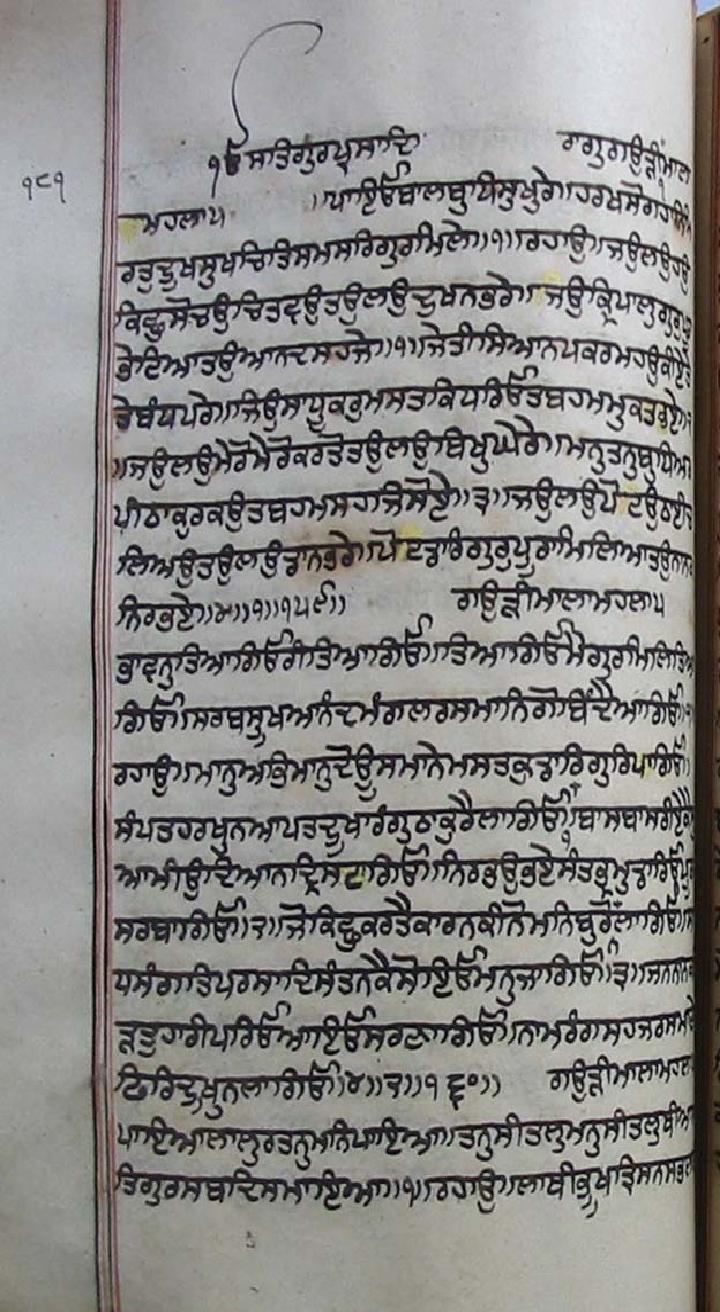 ੧ੳ ਸਤਿਗੁਰਪ੍ਰਸਾਦਿ ਰਾਗੁਗਉੜੀਮਾਲਾ
੧੮੧
ਮਹਲਾ੫ ॥ਪਾਇਓਬਾਲਬੁਧਿਸੁਖੁਰੇ॥ਹਰਖਸੋਗਹਾਨਿਮਿ
ਰਤੁਦੁਖਸੁਖਚਿਤਿਸਮਸਰਿਗੁਰਮਿਲੇ॥੧॥ਰਹਾਉ॥ਜਉਲਉਹਉ
ਕਿਛੁਸੋਚਉਚਿਤਵਉਤਉਲਉਦੁਖਨਭਰੇ॥ਜਉਕ੍ਰਿਪਾਲੁਗੁਰੁਪੂ
ਭੇਟਿਆਤਉਆਨਦਸਹਜੇ॥੧॥ਜੇਤੀਸਿਆਨਪਕਰਮਹਉਕੀਏਤੇ
ਤੇਬੰਧਪਰੇ॥ਜਉਸਾਧੂਕਰੁਮਸਤਕਿਧਰਿਓਤਬਹਮਮੁਕਤਭਏ॥੨
॥ਜਉਲਉਮੇਰੋਮੇਰੋਕਰਤੋਤਉਲਉਬਿਖੁਘੇਰੇ॥ਮਨੁਤਨੁਬੁਧਿਅ
ਪੀਠਾਕੁਰਕਉਤਬਹਮਸਹਜਿਸੋਏ॥੩॥ਜਉਲਉਪੋਟਉਠਈਚ
ਲਿਅਉਤਉਲਉਡਾਨਭਰੇ॥ਪੋਟਡਾਰਿਗੁਰੁਪੂਰਾਮਿਲਿਆਤਉਨਾਨਕ
ਨਿਰਭਏ॥੪॥੧॥੧੫੯॥ ਗਉੜੀਮਾਲਾਮਹਲਾ੫
ਭਾਵਨੁਤਿਆਗਿਓਰੀਤਿਆਗਿਓ॥ਤਿਆਗਿਓਮੈਗੁਰਮਿਲਿਤਿਆ
ਗਿਓ॥ਸਰਬਸੁਖਆਨੰਦਮੰਗਲਰਸਮਾਨਿਗੋਬਿੰਦੈਆਗਿਓ॥੧
ਰਹਾਉ॥ਮਾਨੁਅਭਿਮਾਨੁਦੋਊਸਮਾਨੇਮਸਤਕੁਡਾਰਿਗੁਰਿਪਾਗਿਓ॥
ਸੰਪਤਹਰਖੁਨਆਪਤਦੂਖਾਰੰਗੁਠਾਕੁਰੈਲਾਗਿਓ॥੧॥ਬਾਸਬਾਸਰੀਏਕੈ
ਆਮੀਉਦਿਆਨਦ੍ਰਿਸਟਾਗਿਓ॥ਨਿਰਭਉਭਏਸੰਤਭ੍ਰਮੁਡਾਰਿਓਪੂ
ਸਰਬਾਗਿਓ॥੨॥ਜੋਕਿਛੁਕਰਤੈਕਾਰਨਕੀਨੋਮਨਿਬੁਰੋਨਲਾਗਿਓ॥ਸਾ
ਧਸੰਗਤਿਪਰਸਾਦਿਸੰਤਨਕੈਸੋਇਓਮਨੁਜਾਗਿਓ॥੩॥ਜਨਨਾਨਕ
ੜਤੁਹਾਰੀਪਰਿਓਆਇਓਸਰਣਾਗਿਓ॥ਨਾਮਰੰਗਸਹਜਰਸਮਾਣੇ
ਫਿਰਿਦੂਖੁਨਲਾਗਿਓ॥੪॥੨॥੧੬੦॥ ਗਉੜੀਮਾਲਾਮਹਲ
ਪਾਇਆਲਾਲੁਰਤਨੁਮਨਿਪਾਇਆ॥ਤਨੁਸੀਤਲੁਮਨੁਸੀਤਲੁਥੀਆ
ਤਿਗੁਰਸਬਦਿਸਮਾਇਆ॥੧॥ਰਹਾਉ॥ਲਾਥੀਭੂਖਤ੍ਰਿਸਨਸਭਲ